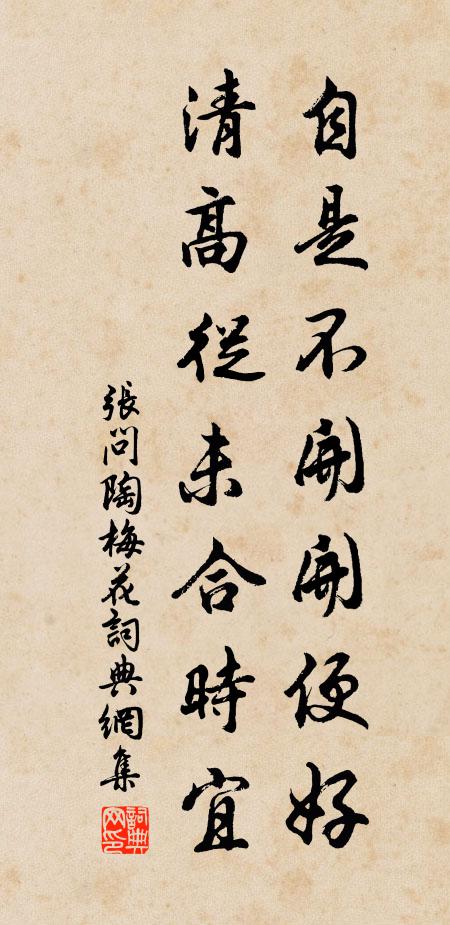 自是不開開便好
清高從未合時宜
張問陶梅花詞典網集
詞典网印